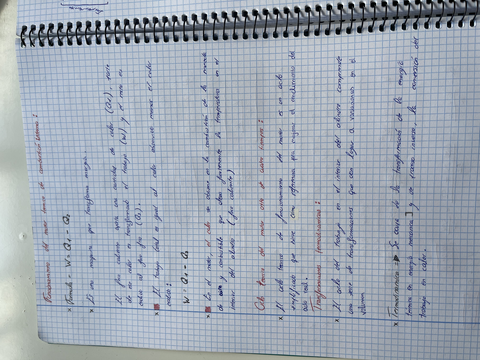 Funcionamiento del motor térmico de combustión interna:
x Fórmula → W = Q₁ - Q₂
x Es una máquina que transforma energía.
El foco caliente cede una cantidad de calor (Q₁), parte
de ese calor es transformado en trabajo (W) y el resto es
cedido al foco frío (Q₂).
x El trabajo total es igual al calor absorbido menos el calor
cedido:
W = Q₁ - Q₂
x En el motor, el calor se obtiene en la combustión de la mezcla
de aire y combustible que eleva fuertemente la temperatura en el
interior del cilindro (foco caliente)
Ciclo teórico del motor otto de cuatro tiempos:
x El ciclo teórico de funcionamiento del motor es un ciclo
simplificado que sirve como referencia para mejorar el rendimiento del
ciclo real.
Transformaciones termodinámicas:
x El ciclo del trabajo en el interior del cilindro comprende
una serie de transformaciones que dan lugar a variaciones en el
x Termodinámica → Se ocupa de la transformación de la energía
térmica en energía mecánica y de forma inversa, la conversión del
trabajo en calor.